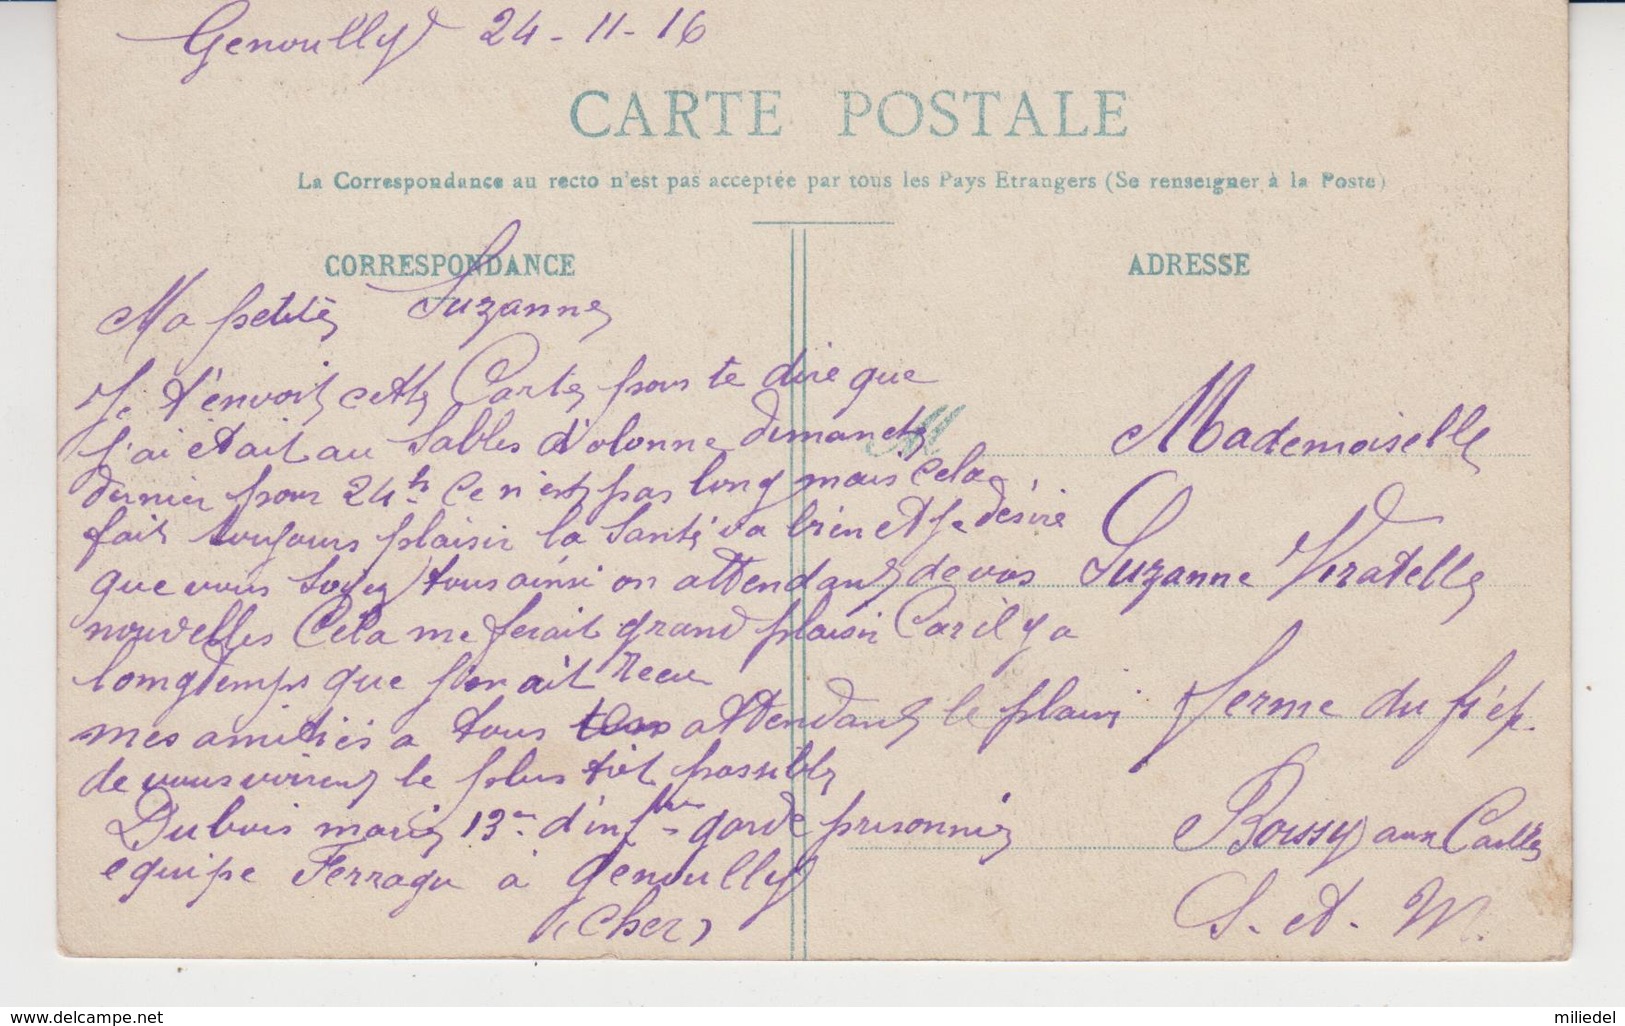 Genoully 24-11-16
CARTE POSTALE
La Correspondance au recto n'est pas acceptée par tous les Pays Etrangers (Se renseigner à la Poste)
CORRESPONDANCE
Ma petite Suzanne
Je t'envoit cette Carte pour te dire que
j'ai était au Sables d'olonne dimanche
dernier pour 24h Ce n'est pas long mais cela
fait toujours plaisir la Santé va bien et je désire
que vous soyez tous ainsi on attendant de vos
nouvelles Cela me ferait grand plaisir Car il y a
longtemps que j'en ait recu
mes amitiés a tous attendant le plaisir
de vous voir le plus tôt possible
Dubois 13me d'inftrie garde prisonnier
equipe Ferragu à Genoully
(Cher)
ADRESSE
M
Mademoiselle
Suzanne Viratelle
ferme du
Boissy aux Cailles
S. et M.
www.delcampe.net
miliedel